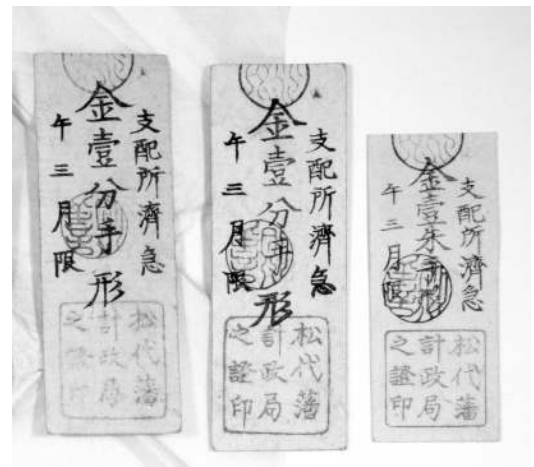 支配所濟急
金壹分手形
午三月限
松代藩
計政局
之證印
支配所濟急
金壹分手形
午三月限
松代藩
計政局
之證印
支配所濟急
金壹朱手形
午三月限
松代藩
計政局
之證印